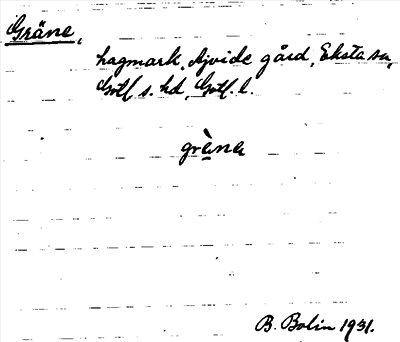 Gräne,
hagmark, Ajvide gård, Eksta sn,
Gotl s. hd, Gotl. l.
grè̱na
B. Bolin 1931.